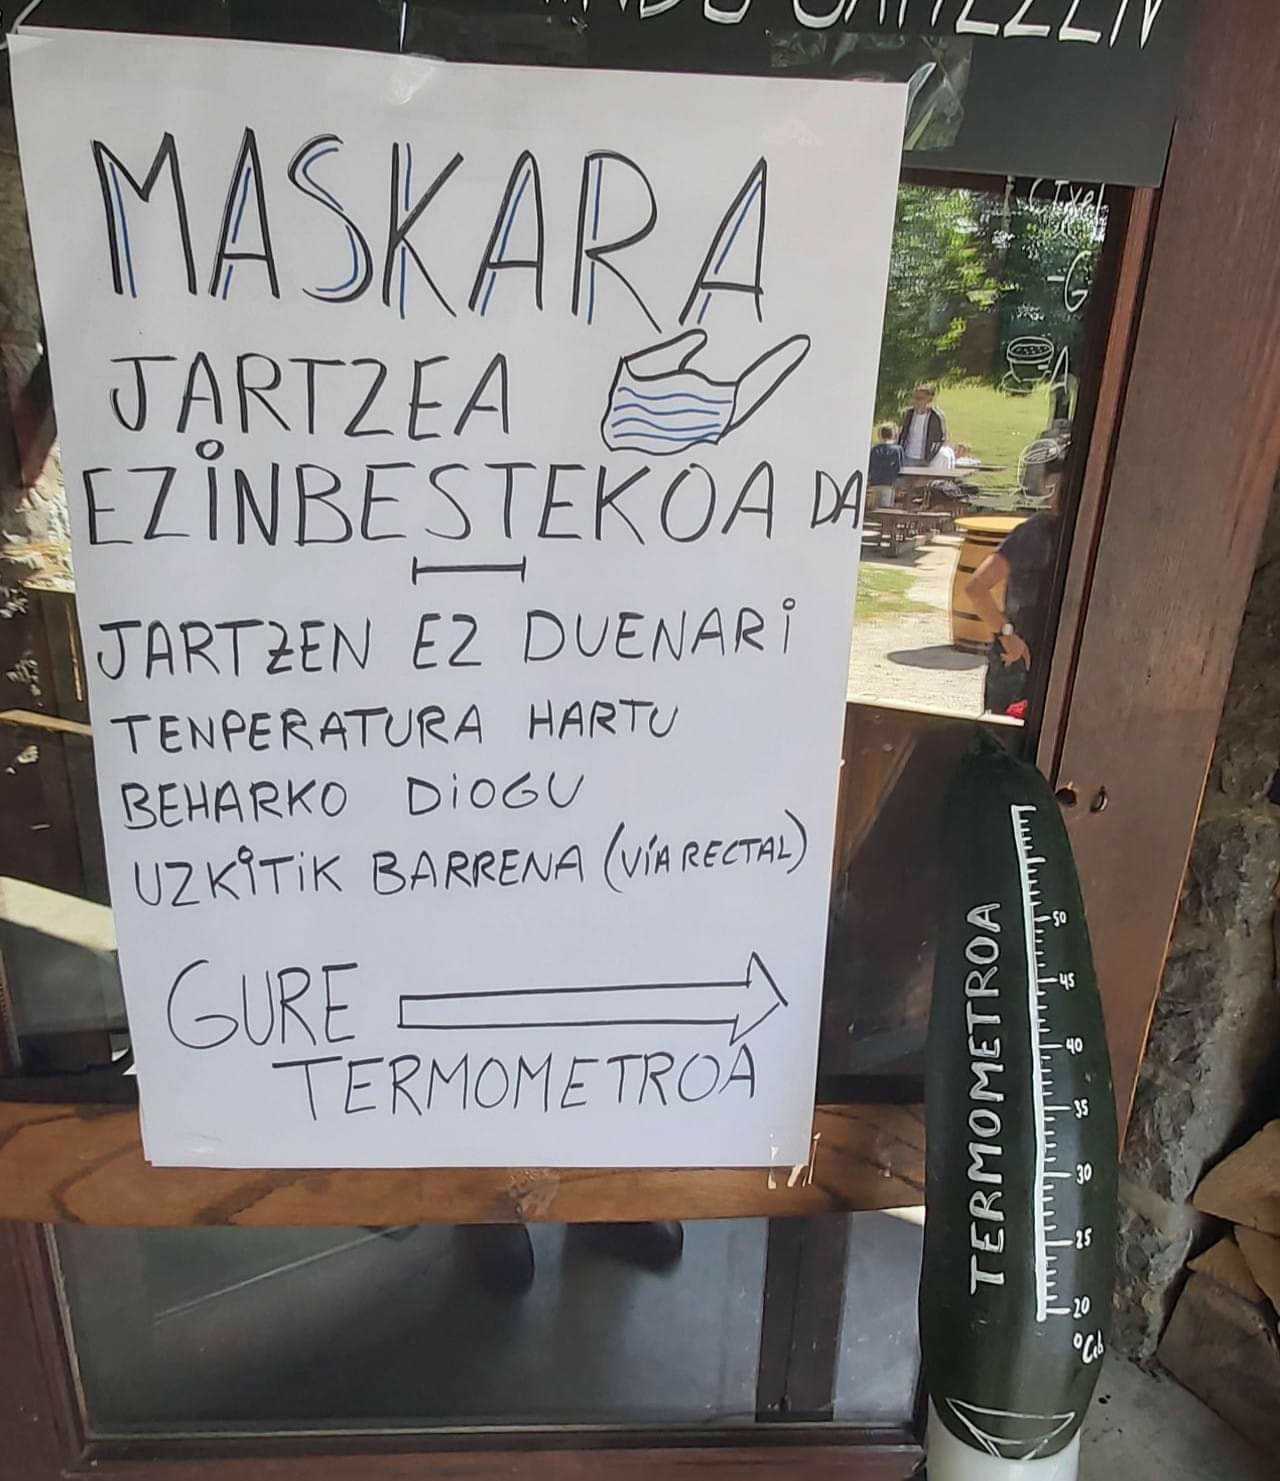 GAITEZEN
MASKARA
JARTZEA
EZINBESTEKOA DA
JARTZEN EZ DUENARI
TENPERATURA HARTU
BEHARKO DIOGU
UZKITIK BARRENA (VÍA RECTAL)
GURE
TERMOMETROA
TERMOMETROA
50
45
40
35
30
25
20